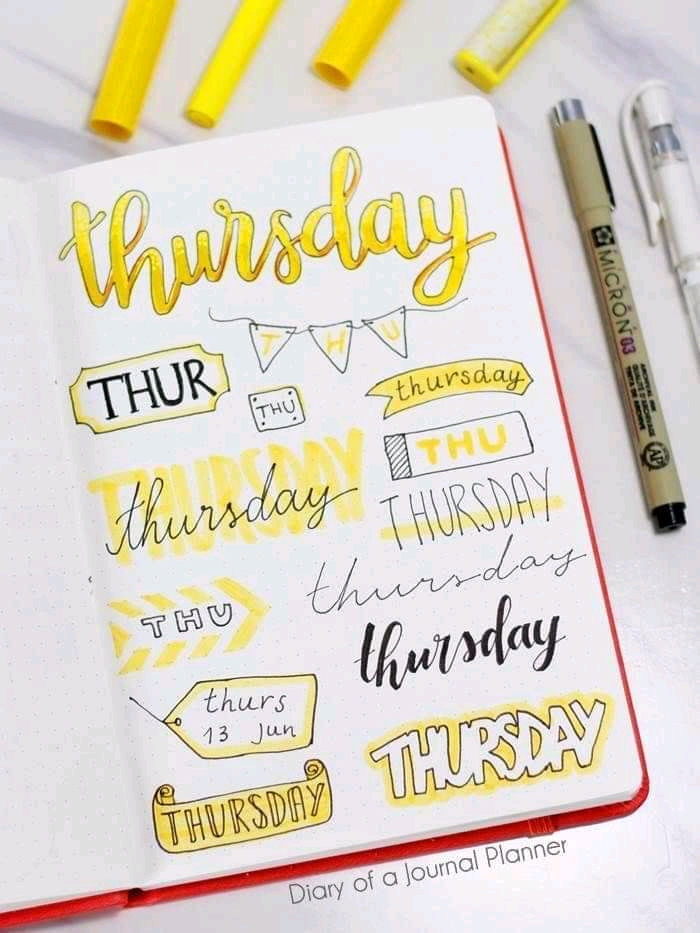 thursday
THU
THUR
THU
thursday
THU
THURSDAY
thursday
THURSDAY
thursday
THU
thursday
thurs
13 Jun
THURSDAY
THURSDAY
MICRON 03
AP
Diary of a Journal Planner